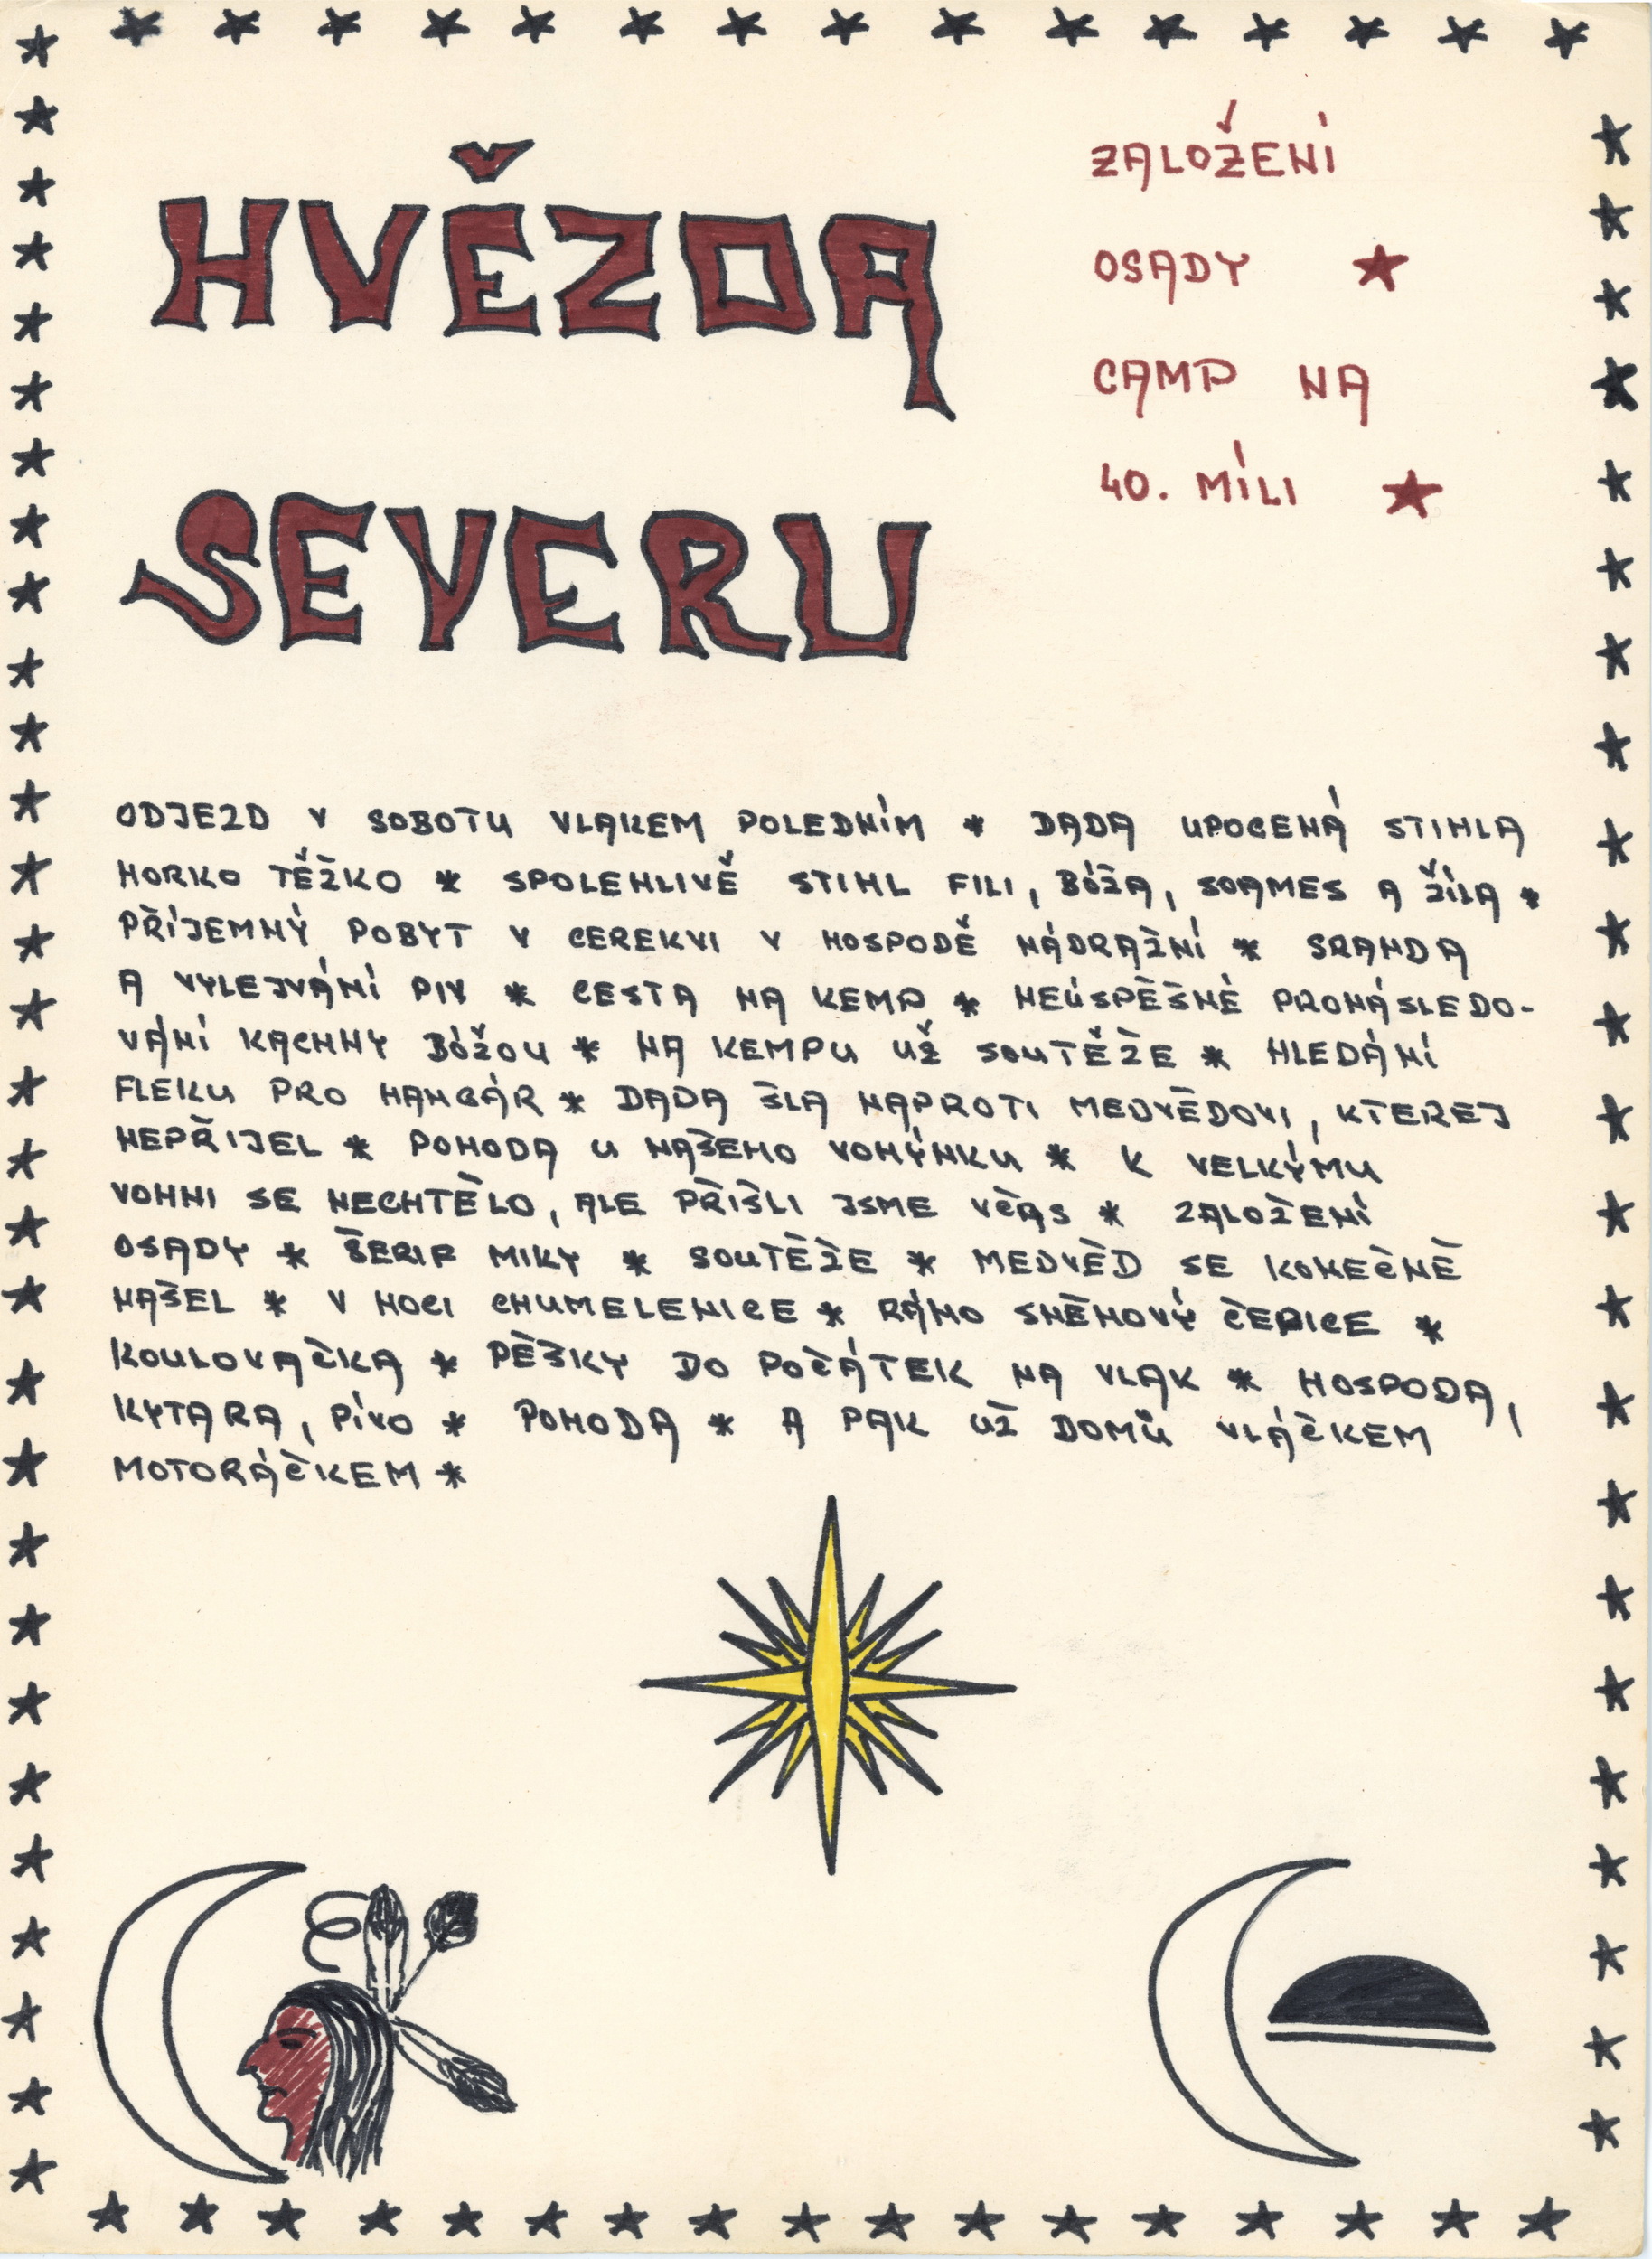 HVĚZDA
SEVERU
ZALOŽENÍ
OSADY ★
CAMP NA
40. MÍLI ★
ODJEZD V SOBOTU VLAKEM POLEDNÍM * DADA UPOCENÁ STIHLA
HORKO TĚŽKO * SPOLEHLIVĚ STIHL FILI, BÓŽA, SOAMES A ŽÍLA *
PŘÍJEMNÝ POBYT V CEREKVI V HOSPODĚ NÁDRAŽNÍ * SRANDA
A VYLEJVÁNÍ PIV * CESTA NA KEMP * NEÚSPĚŠNÉ PRONÁSLEDO-
VÁNÍ KACHNY BÓŽOU * NA KEMPU UŽ SOUTĚŽE * HLEDÁNÍ
FLEKU PRO HANGÁR * DADA ŠLA NAPROTI MEDVĚDOVI, KTEREJ
NEPŘIJEL * POHODA U NAŠEHO VOHÝNKU * K VELKÝMU
VOHNI SE NECHTĚLO, ALE PŘIŠLI JSME VČAS * ZALOŽENÍ
OSADY * ŠERIF MIKY * SOUTĚŽE * MEDVĚD SE KONEČNĚ
NAŠEL * V NOCI CHUMELENICE * RÁNO SNĚHOVÝ ČEPICE *
KOULOVAČKA * PĚŠKY DO POČÁTEK NA VLAK * HOSPODA,
KYTARA, PÍVO * POHODA * A PAK UŽ DOMŮ VLÁČKEM
MOTORÁČKEM *